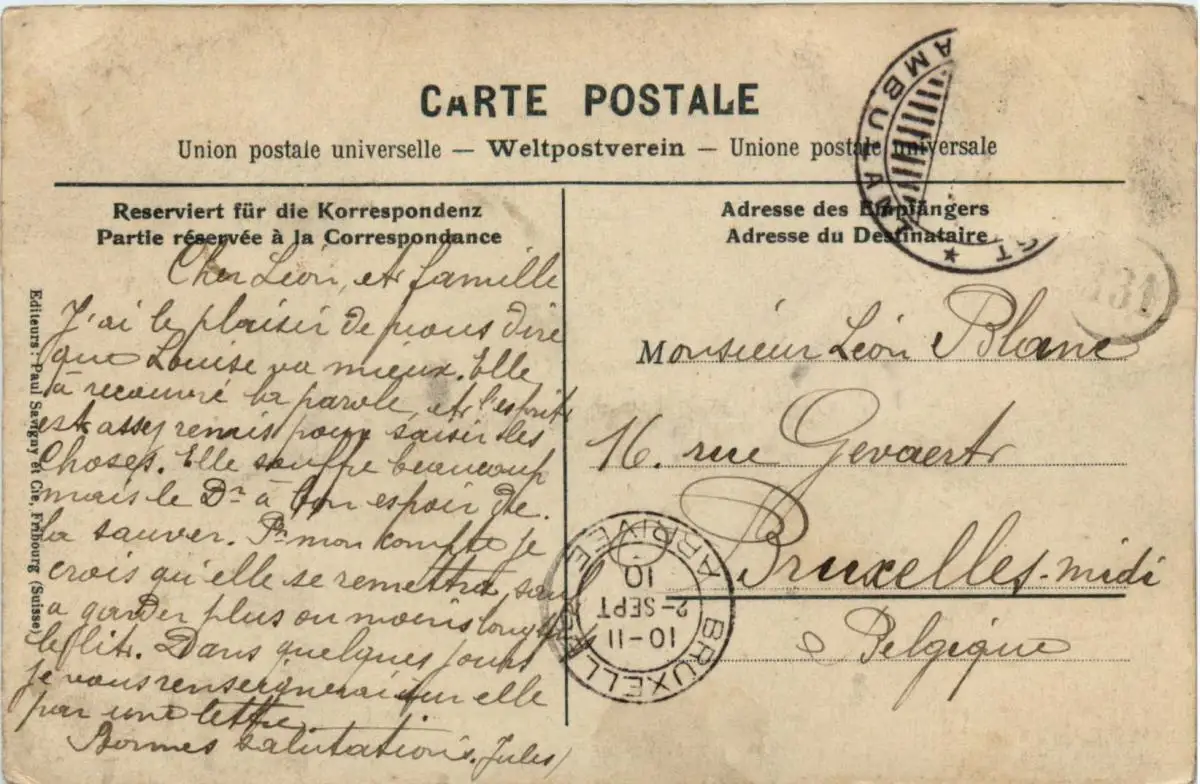 CARTE POSTALE
Union postale universelle — Weltpostverein — Unione postale universale
Reserviert für die Korrespondenz
Partie réservée à la Correspondance
Cher Léon, et famille
J'ai le plaisir de vous dire
que Louise va mieux. Elle
à recouvré la parole, et l'esprit
est assez remis pour saisir les
choses. Elle souffre beaucoup
mais le Dr à bon espoir de
la sauver. Pr mon compte je
crois qu'elle se remettra, sauf
a garder plus ou moins longtemps
le lit. Dans quelques jours
je vous renseignerai sur elle
par une lettre.
Bonnes salutations. Jules
Editeurs: Paul Savigny et Cie, Fribourg (Suisse)
Adresse des Empfängers
Adresse du Destinataire
Monsieur Léon Blanc
16. rue Gevaert
Bruxelles-midi
Belgique
AMBULANT
BRUXELLES ARRIVÉE
10-11
2-SEPT
10